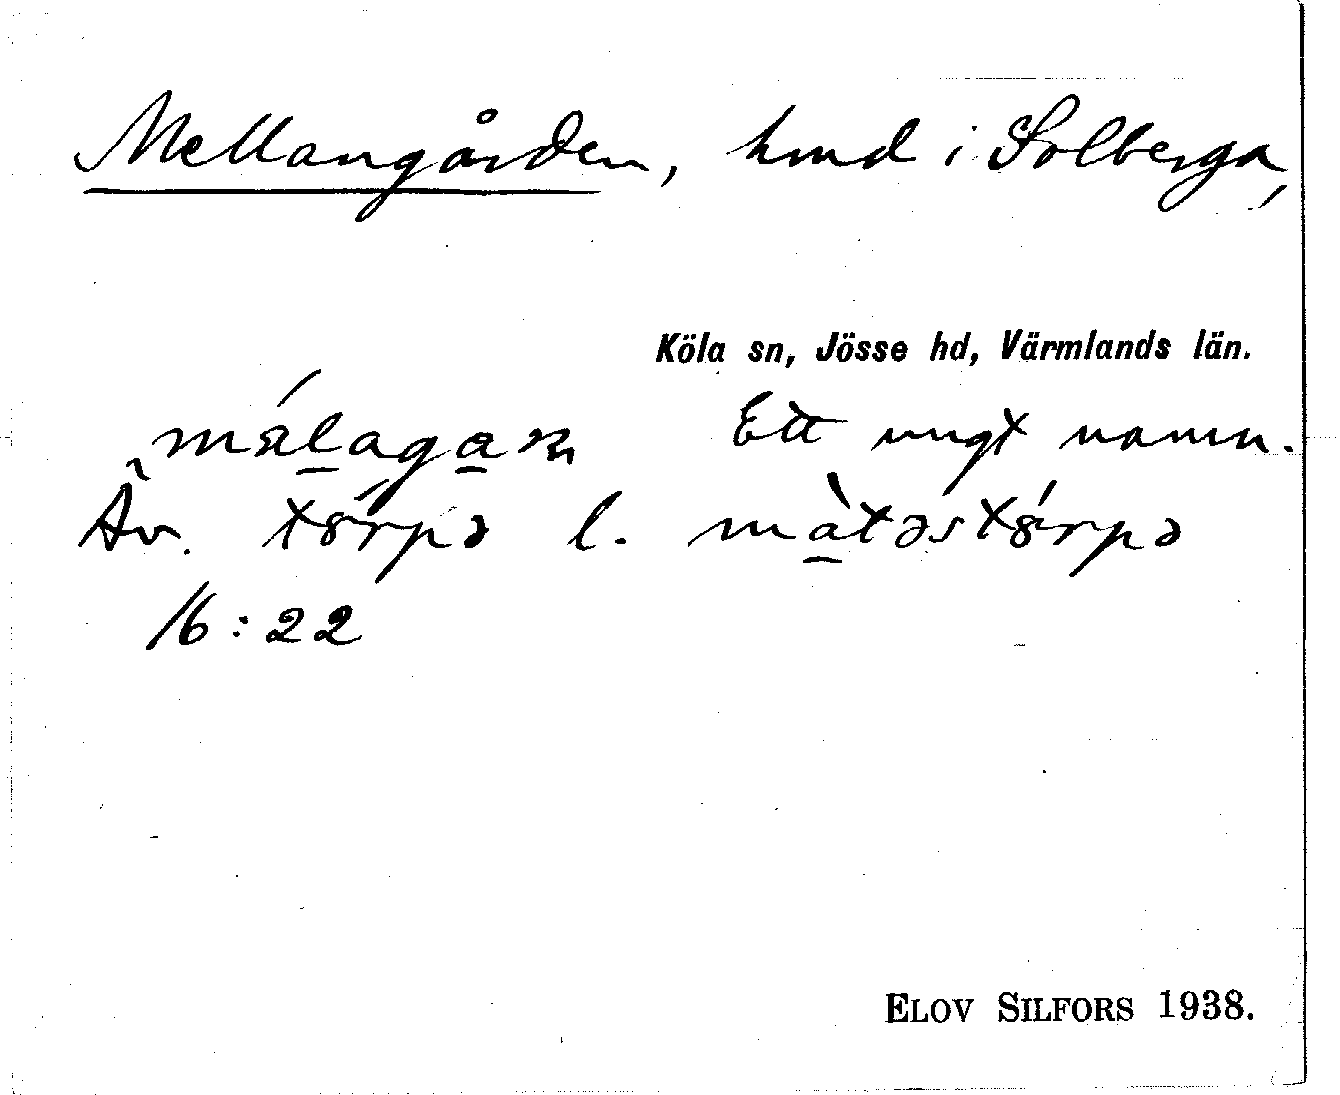 Mellangården, hmd i Solberga,
Köla sn, Jösse hd, Värmlands län.
Ett ungt namn.
Äv. tørpə l. màtəstørpə
16:22
ELOV SILFORS 1938.